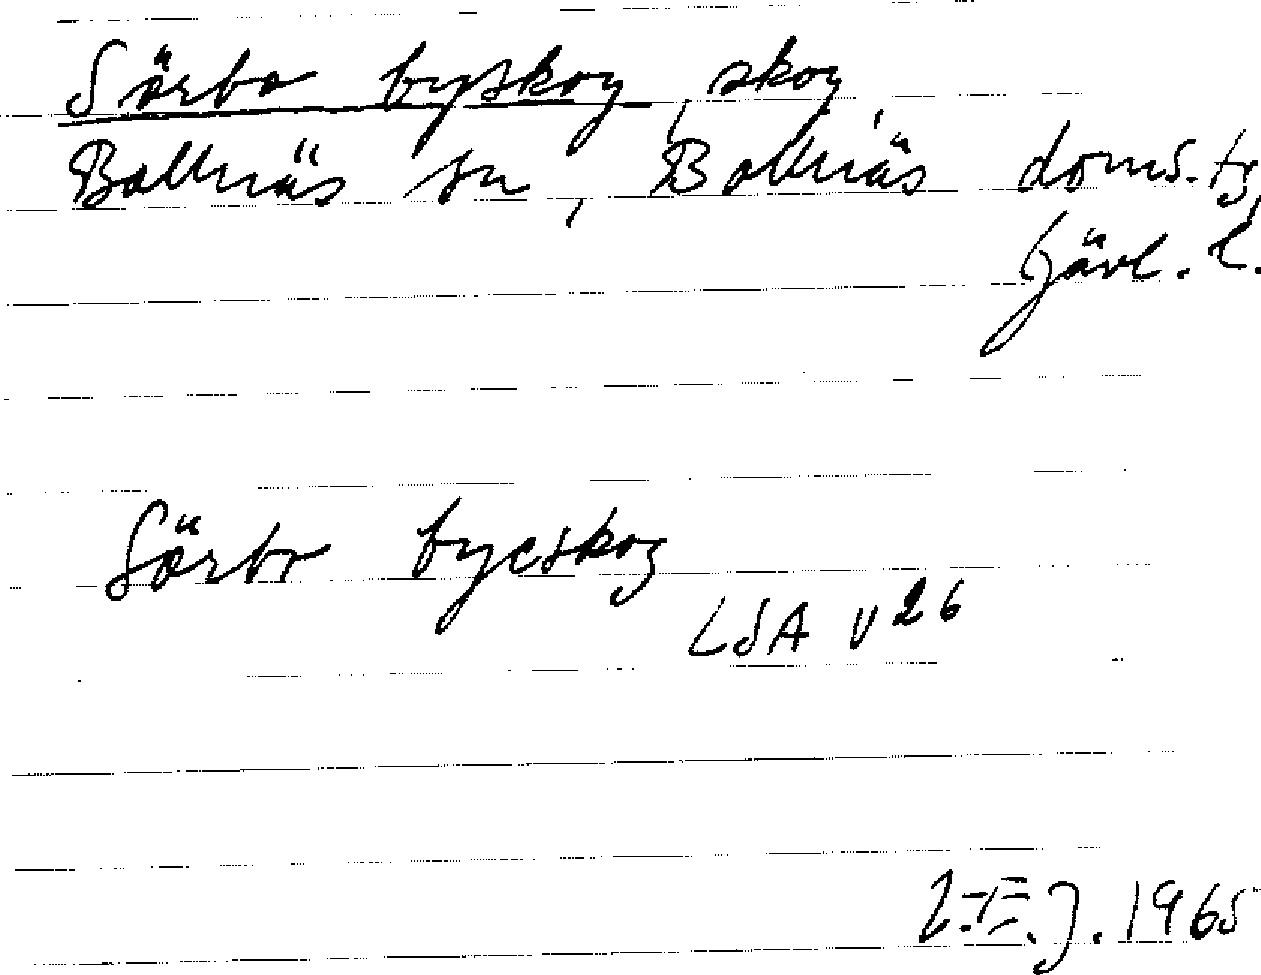 Sörbo byskog, skog,
Bollnäs sn, Bollnäs doms.tg,
Gävl. l.
Sörbo byeskog
LSA V 26
L.E.J. 1965